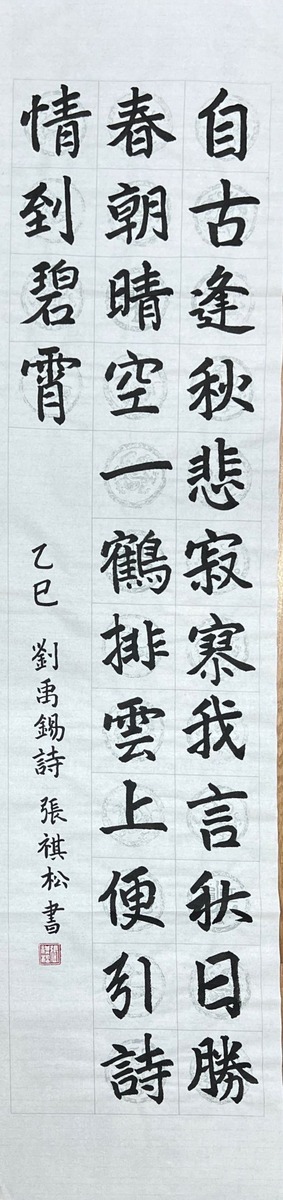 自古逢秋悲寂寥我言秋日勝
春朝晴空一鶴排雲上便引詩
情到碧霄
乙巳 劉禹錫詩 張祺松書